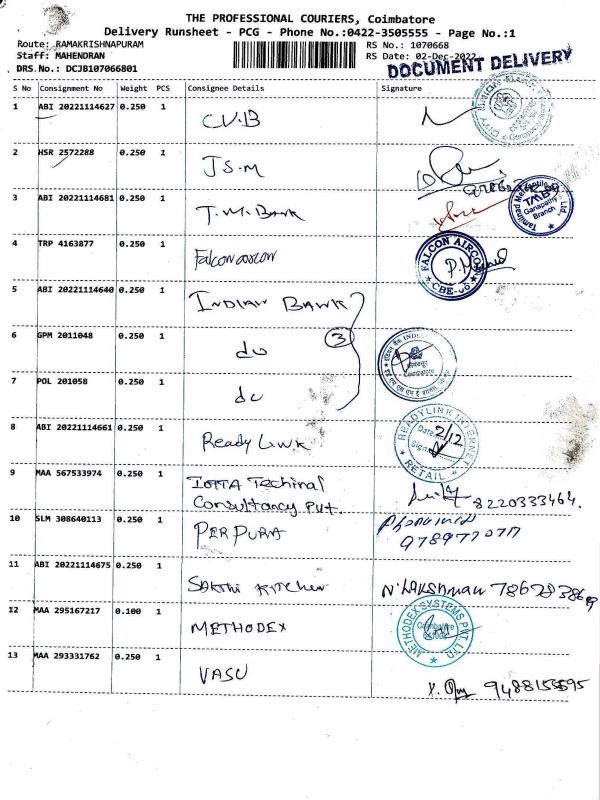 THE PROFESSIONAL COURIERS, Coimbatore
Delivery Runsheet - PCG - Phone No.:0422-3505555 - Page No.:1
Route: RAMAKRISHNAPURAM RS No.: 1070668
Staff: MAHENDRAN RS Date: 02-Dec-2022
DRS.No.: DCJB107066801 DOCUMENT DELIVERY
S No Consignment No Weight PCS Consignee Details Signature
1 ABI 20221114627 0.250 1
C.U.B
2 HSR 2572288 0.250 1
J.S.M
3 ABI 20221114681 0.250 1
T.M.BANK
Tamilnad Mercantile Bank Ltd. TMB Ganapathy Branch
4 TRP 4163877 0.250 1
Falcon aircon
FALCON AIRCON CBE-06
5 ABI 20221114640 0.250 1
INDIAN BANK
6 GPM 2011048 0.250 1
do 3
7 POL 201058 0.250 1
do
8 ABI 20221114661 0.250 1
Ready Link
READYLINK INTERNET Date 2/12 Sign RETAIL
9 MAA 567533974 0.250 1
IOTTA Techinal
Consultancy Pvt. 8220333464.
10 SLM 308640113 0.250 1
PERPURA 9789770717
11 ABI 20221114675 0.250 1
Sakthi Kitchen N. LAKSHMAN
12 MAA 295167217 0.100 1
METHODEX
METHODEX SYSTEMS PVT LTD Coimbatore
13 MAA 293331762 0.250 1
VASU 9488155595